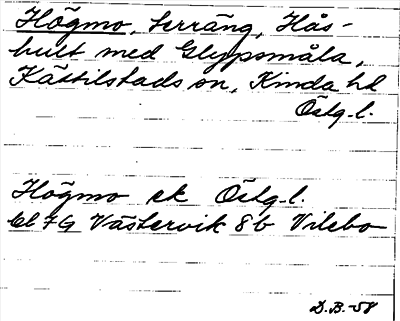 Högmo, terräng, Hås-
hult med Glypsmåla,
Kättilstads sn, Kinda hd
Östg.l.
Högmo ek Östg.l.
bl 7G Västervik 8b Vilebo
D.B.-58